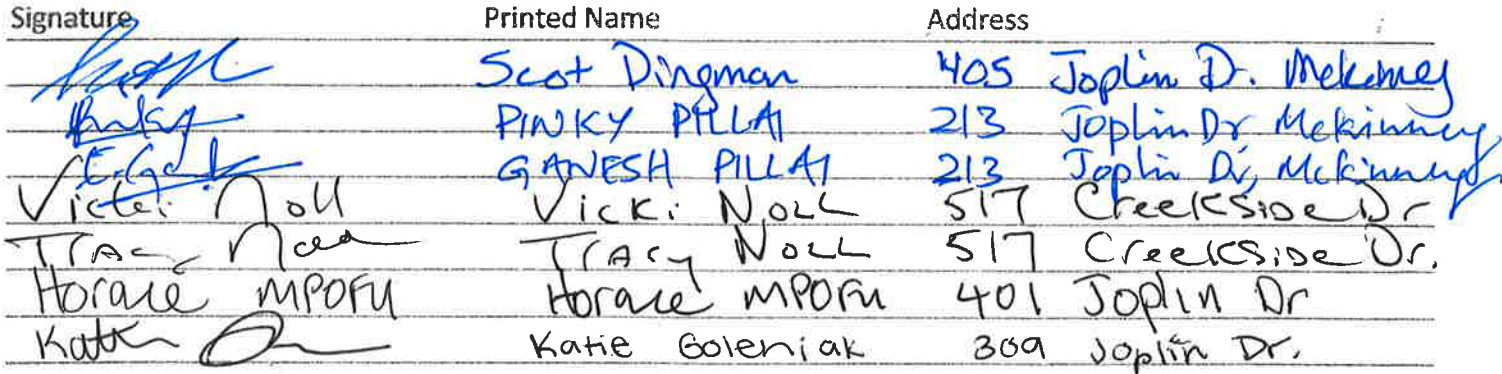 Signature Printed Name Address
Scot Dingman 405 Joplin Dr. Mckinney
Pinky PINKY PILLAI 213 Joplin Dr Mckinney,
GANESH PILLAI 213 Joplin Dr, Mckinney
Vicki Noll Vicki NOLL 517 Creekside Dr
Tracy Noll Tracy NOLL 517 Creekside Dr.
Horace MPOFU Horace MPOFU 401 Joplin Dr
Katie Goleniak 309 Joplin Dr.